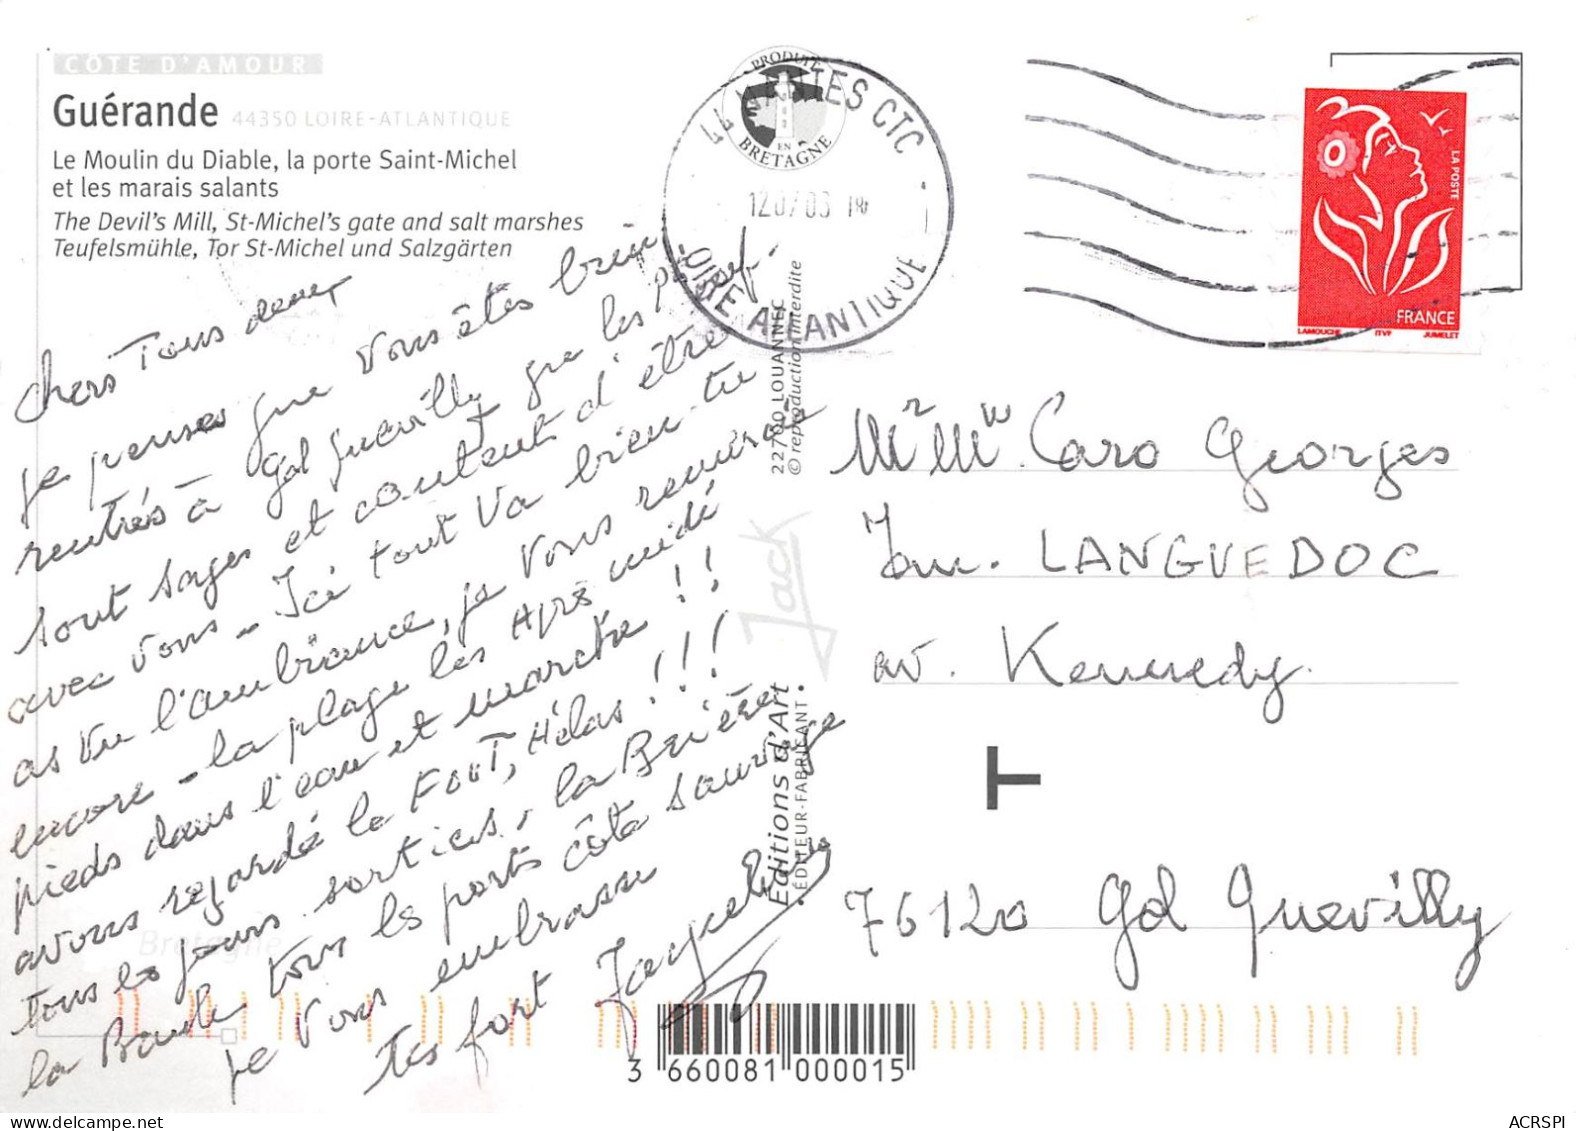 CÔTE D'AMOUR
Guérande 44350 LOIRE-ATLANTIQUE
Le Moulin du Diable, la porte Saint-Michel
et les marais salants
The Devil's Mill, St-Michel's gate and salt marshes
Teufelsmühle, Tor St-Michel und Salzgärten
Chers Tous deux
je penses que vous êtes bien
rentrés à Gd Quevilly que les
sont sages et content d'être
avec vous - Ici tout va bien tu
as vu l'ambiance, je vous
encore - la plage les Après midé
pieds dans l'eau et marche !!
avons regardé le FOOT, Hélas !!!
tous les jours sorties, la Brière
la Baule tous les ports côte sauvage
je vous embrasse
tes fort Jacqueline
PRODUIT
EN
BRETAGNE
44 NANTES CTC
LOIRE ATLANTIQUE
22700 LOUANNEC
© reproduction interdite
Jack
Editions d'Art
ÉDITEUR-FABRICANT
Bretagne
LA POSTE
FRANCE
LAMOUCHE ITVF JUMELET
Mr Mme Caro Georges
Im. LANGUEDOC
av. Kennedy
T
76120 Gd Quevilly
3 660081 000015
ACRSPI